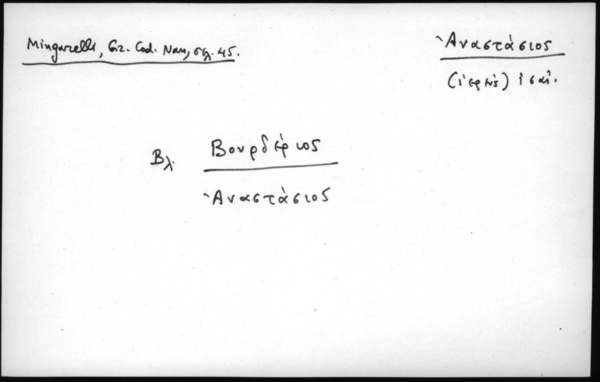 Mingarelli, Gr. Cod. Nan, σελ. 45.
Ἀναστάσιος
(ἱερεὺς)
Βλ. Βουρδέριος
Ἀναστάσιος